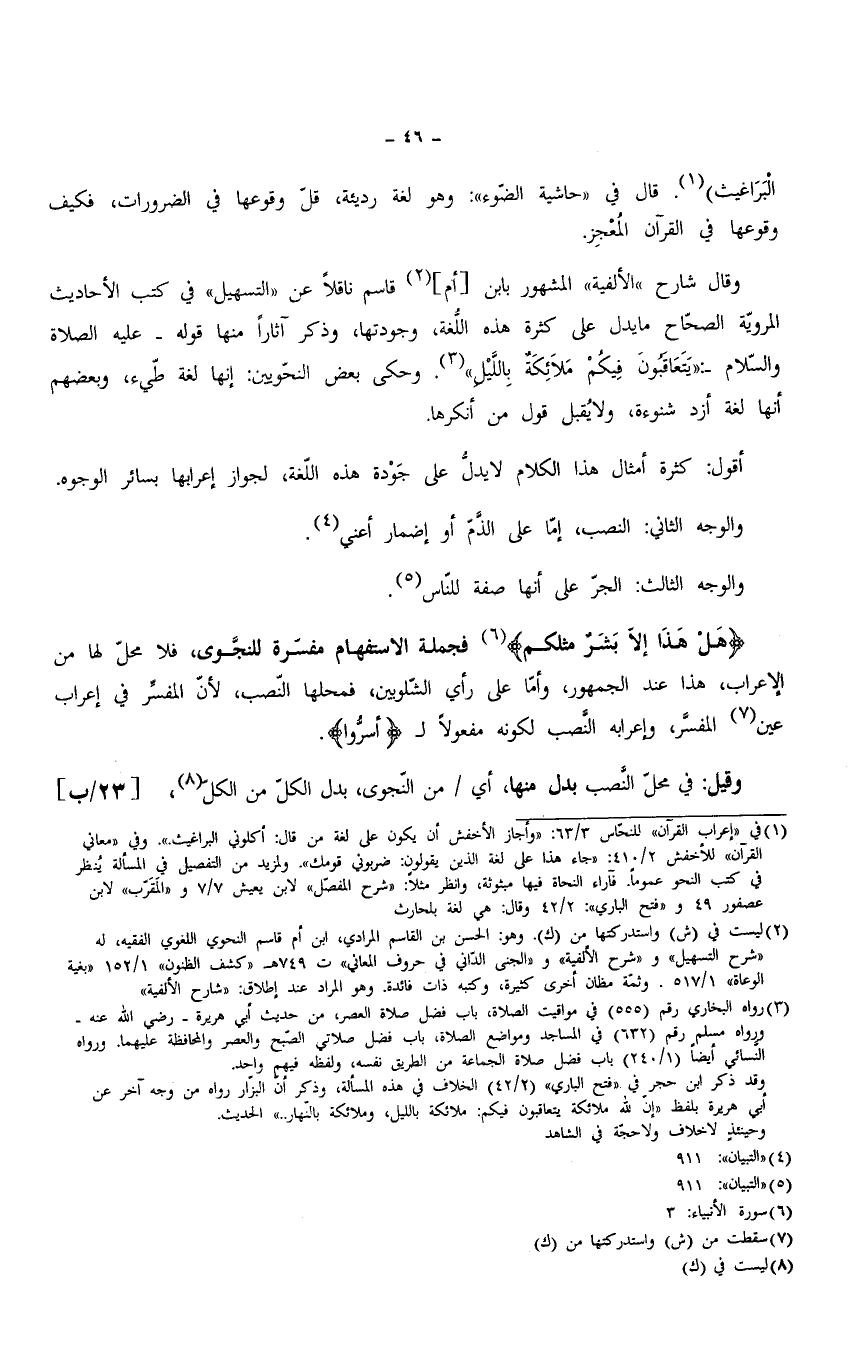 - ٤٦ -
الْبَرَاغيث)(١). قال في «حاشية الضّوء»: وهو لغة رديئة، قلّ وقوعها في الضرورات، فكيف
وقوعها في القرآن المُعْجِز.
وقال شارح «الألفية» المشهور بابن [أم](٢) قاسم ناقلاً عن «التسهيل» في كتب الأحاديث
المرويّة الصحّاح مايدل على كثرة هذه اللُّغة، وجودتها، وذكر آثاراً منها قوله ـ عليه الصلاة
والسّلام ـ:«يَتَعَاقَبُونَ فِيكُمْ مَلاَئِكَةٌ بِاللَّيْلِ»(٣). وحكى بعض النحّويين: إنها لغة طّيء، وبعضهم
أنها لغة أزد شنوءة، ولايُقبل قول من أنكرها.
أقول: كثرة أمثال هذا الكلام لايدلُّ على جَوْدة هذه اللّغة، لجواز إعرابها بسائر الوجوه.
والوجه الثاني: النصب، إمّا على الذَّمّ أو إضمار أعني(٤).
والوجه الثالث: الجرّ على أنها صفة للنّاس(٥).
﴿هَلْ هَذَا إلاَّ بَشَرٌ مثلكـم﴾(٦) فجملة الاستفهام مفسّرة للنجّوى، فلا محلّ لها من
الإعراب، هذا عند الجمهور، وأمّا على رأي الشّلوبين، فمحلها النّصب، لأنّ المفسِّر في إعراب
عين(٧) المفسَّر، وإعرابه النَّصب لكونه مفعولاً لـ ﴿أسرُّوا﴾.
وقيل: في محلّ النَّصب بدل منها، أي / من النّجوى، بدل الكلّ من الكل(٨)، [٢٣/ب]
(١)في «إعراب القرآن» للنحّاس ٦٣/٣: «وأجاز الأخفش أن يكون على لغة من قال: أكلوني البراغيث.». وفي «معاني
القرآن» للأخفش ٤١٠/٢: «جاء هذا على لغة الذين يقولون: ضربوني قومك». ولمزيد من التفصيل في المسألة يُنظر
في كتب النحو عموماً. فآراء النحاة فيها مبثوثة، وانظر مثلاً: «شرح المفصّل» لابن يعيش ٧/٧ و «المَقَرّب» لابن
عصفور ٤٩ و «فتح الباري»: ٤٢/٢ وقال: هي لغة بلحارث
(٢)ليست في (ش) واستدركتها من (ك). وهو: الحسن بن القاسم المرادي، ابن أم قاسم النحوي اللغوي الفقيه، له
«شرح التسهيل» و «شرح الألفية» و «الجنى الدّاني في حروف المعاني» ت ٧٤٩هـ «كشف الظنون» ١٥٢/١ «بغية
الوعاة» ٥١٧/١ . وثمّة مظان أخرى كثيرة، وكتبه ذات فائدة. وهو المراد عند إطلاق: «شارح الألفية»
(٣)رواه البخاري رقم (٥٥٥) في مواقيت الصلاة، باب فضل صلاة العصر، من حديث أبي هريرة ـ رضي الله عنه ـ
ورواه مسلم رقم (٦٣٢) في المساجد ومواضع الصلاة، باب فضل صلاتي الصّبح والعصر والمحافظة عليهما. ورواه
النّسائي أيضاً (٢٤٠/١) باب فضل صلاة الجماعة من الطريق نفسه، ولفظه فيهم واحد.
وقد ذكر ابن حجر في «فتح الباري» (٤٢/٢) الخلاف في هذه المسألة، وذكر أنّ البزّار رواه من وجه آخر عن
أبي هريرة بلفظ «إنّ لله ملائكة يتعاقبون فيكم: ملائكة بالليل، وملائكة بالنّهار..» الحديث.
وحينئذٍ لاخلاف ولاحجّة في الشاهد
(٤)«التبيان»: ٩١١
(٥)«التبيان»: ٩١١
(٦)سورة الأنبياء: ٣
(٧)سقطت من (ش) واستدركتها من (ك)
(٨)ليست في (ك)